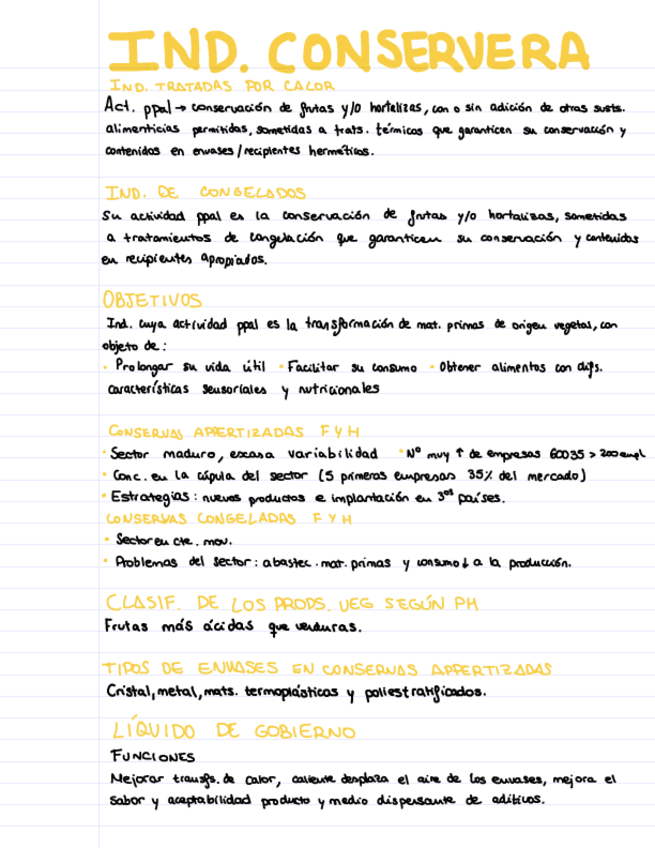 IND. CONSERVERA
IND. TRATADAS POR CALOR
Act. ppal → conservación de frutas y/o hortalizas, con o sin adición de otras susts.
alimenticias permitidas, sometidas a trats. térmicos que garanticen su conservación y
contenidos en envases/recipientes herméticos.
IND. DE CONGELADOS
Su actividad ppal es la conservación de frutas y/o hortalizas, sometidas
a tratamientos de congelación que garanticen su conservación y contenidos
en recipientes apropiados.
OBJETIVOS
Ind. cuya actividad ppal es la transformación de mat. primas de origen vegetal, con
objeto de:
· Prolongar su vida útil · Facilitar su consumo · Obtener alimentos con difs.
características sensoriales y nutricionales
CONSERVAS APPERTIZADAS F Y H
· Sector maduro, escasa variabilidad · Nº muy ↑ de empresas 600 35 > 200 empl
· Conc. en la cúpula del sector (5 primeras empresas 35% del mercado)
· Estrategias: nuevos productos e implantación en 3ᵒˢ países.
CONSERVAS CONGELADAS F Y H
· Sector en cte. mov.
· Problemas del sector: abastec. mat. primas y consumo ↓ a la producción.
CLASIF. DE LOS PRODS. VEG SEGÚN PH
Frutas más ácidas que verduras.
TIPOS DE ENVASES EN CONSERVAS APPERTIZADAS
Cristal, metal, mats. termoplásticos y poliestratificados.
LÍQUIDO DE GOBIERNO
FUNCIONES
Mejorar transfs. de calor, caliente desplaza el aire de los envases, mejora el
sabor y aceptabilidad producto y medio dispersante de aditivos.